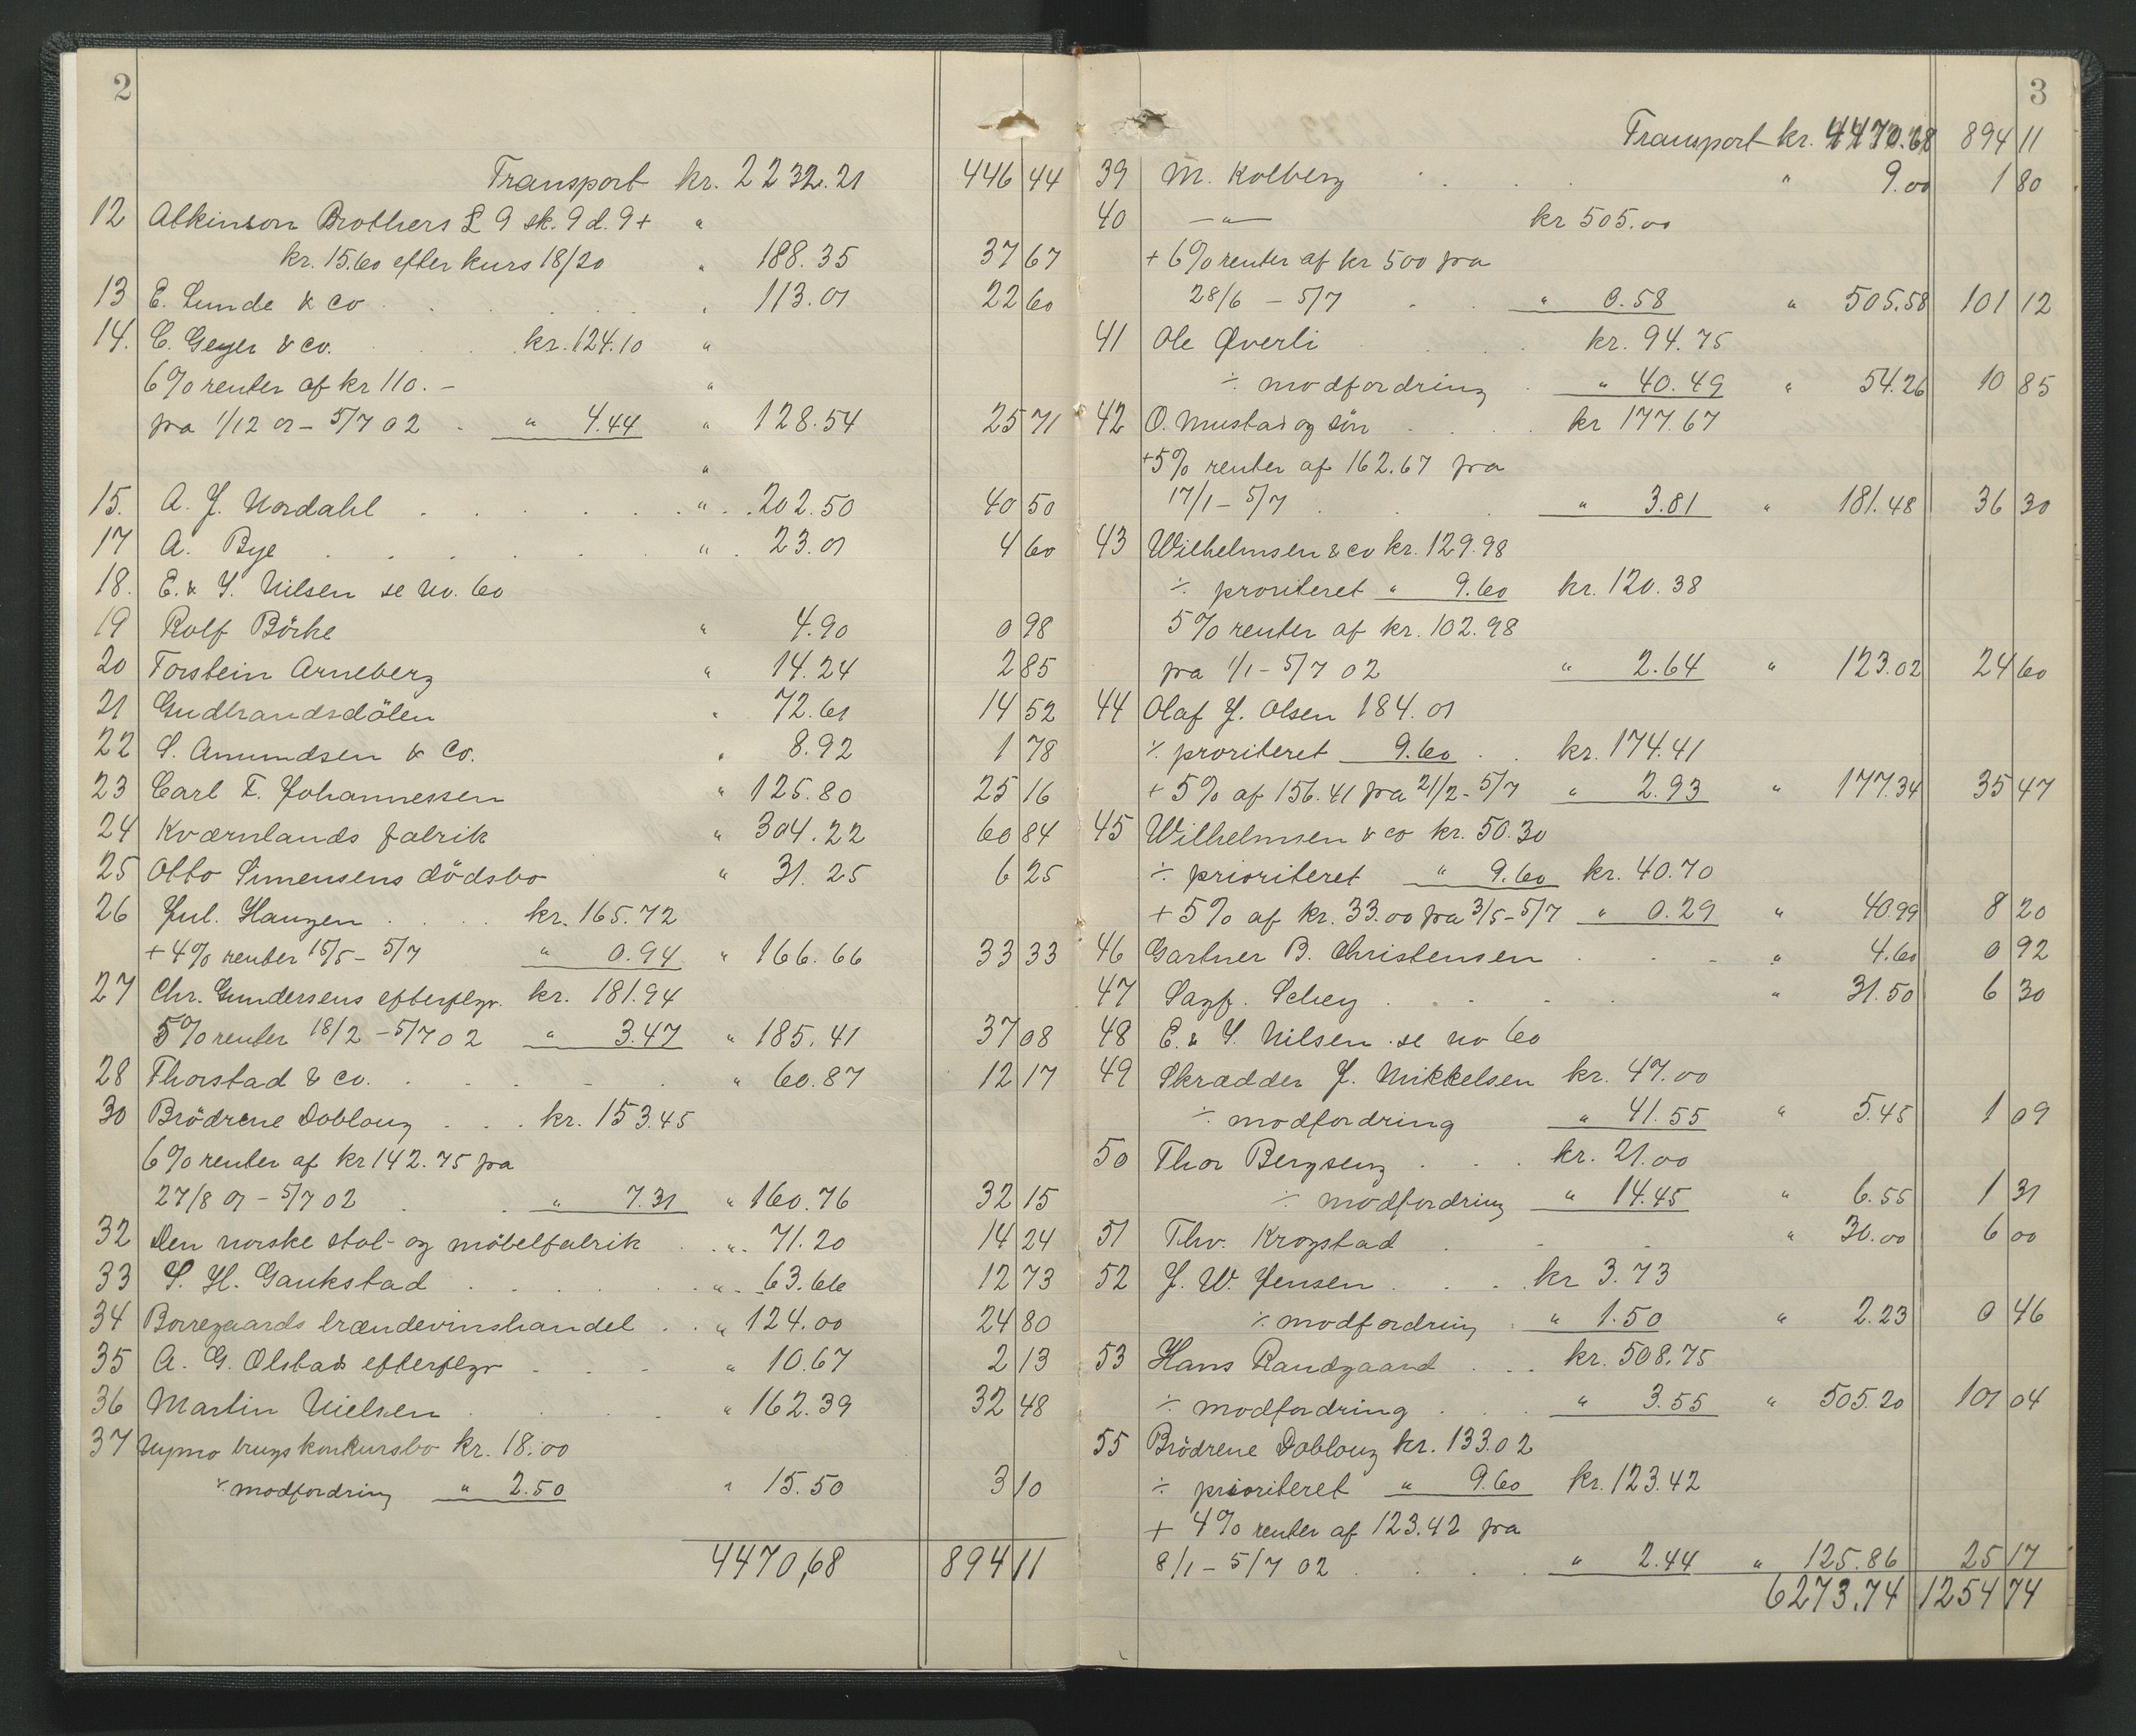 2
Transport kr. 2232.21 446 44
12 Atkinson Brothers £ 9 sk. 9 d. 9 + "
kr. 15.60 efter kurs 18/20 " 188.35 37 67
13 E. Sunde & Co . . . . . . 113.01 22 60
14. C. Geyer & co. . . . kr. 124.10 "
6% renter af kr 110. – "
fra 1/12 01 – 5/7 02 . " 4.44 " 128.54 25 71
"
15. A. J. Nordahl . . . . . . " . . 202.50 40 50
17 A. Bye . . . . . . " . 23.01 4 60
18. E. & S. Nilsen se No. 60
19 Rolf Börke " 4.90 0 98
20 Torstein Arneberg " 14.24 2 85
21 Gudbrandsdölen " 72.61 14 52
22 S. Amundsen & Co. " 8.92 1 78
23 Carl F. Johannessen " 125.80 25 16
24 Kværnlands fabrik " 304.22 60 84
25 Otto Simensens dödsbo " 31.25 6 25
26 Jul. Haugen . . . kr. 165.72
+ 4% renter 15/5 – 5/7 " 0.94 " 166.66 33 33
27 Chr. Gundersens efterflgr. kr. 181.94
5% renter 18/2 – 5/7 02 " 3.47 " 185.41 37 08
28 Thorstad & Co. . . . . . " 60.87 12 17
30 Brödrene Doblong . . . kr. 153.45
6% renter af kr 142.75 fra
27/8 01 – 5/7 02 . . " 7.31 " 160.76 32 15
32 Den norske stol- og möbelfabrik . . " . 71.20 14 24
33 S. H. Gaukstad . . . . . . " . . 63.66 12 73
34 Borregaards brændevinshandel . . " 124.00 24 80
35 A. G. Olstads efterflgr . . . " 10.67 2 13
36 Martin Nielsen . . . " 162.39 32 48
37 Nymo brugs konkursbo kr. 18.00
÷ modfordring " 2.50 " 15.50 3 10
4470,68 894 11
3
Transport kr. 4470.68 894 11
39 M. Kolberg . . . " 9.00 1 80
40 –"– kr 505.00
+ 6% renter af kr 500 fra
28/6 – 5/7 . . " 0.58 " 505.58 101 12
41 Ole Øverli . . . kr. 94.75
÷ modfordring . " 40.49 " 54.26 10 85
42 O. Mustad og sön . . . . kr 177.67
+ 5% renter af 162.67 fra
17/1 – 5/7 . . . " 3.81 " 181.48 36 30
43 Wilhelmsen & co kr. 129.98
÷ proriteret " 9.60 kr. 120.38
5% renter af kr. 102.98
fra 1/1 – 5/7 02 " 2.64 " 123.02 24 60
44 Olaf J. Olsen 184.01
÷ proriteret 9.60 . . kr. 174.41
+ 5% af 156.41 fra 21/2 – 5/7 " 2.93 " 177.34 35 47
45 Wilhelmsen & co kr. 50.30
÷ prioriteret " 9.60 kr. 40.70
+ 5% af kr. 33.00 fra 3/5 – 5/7 " 0.29 " 40.99 8 20
46 Gartner B. Christensen . . . " 4.60 0 92
47 Sagf. Schey . . . . . " 31.50 6 30
48 E. & S. Nilsen . se no 60
49 Skrædder J. Mikkelsen kr. 47.00
÷ modfordring " 41.55 " 5.45 1 09
50 Thor Bergseng . . . kr. 21.00
÷ modfordring " 14.45 " 6.55 1 31
51 Thv. Krogstad . . . " 30.00 6 00
52 J. W. Jensen . . . kr 3.73
÷ modfordring . " 1.50 " 2.23 0 46
53 Hans Randgaard . . . kr. 508.75
÷ modfordring . . . " 3.55 " 505.20 101 04
55 Brödrene Doblong kr. 133.02
÷ prioriteret " 9.60 kr. 123.42
+ 4% renter af 123.42 fra
8/1 – 5/7 02 . . . . " 2.44 " 125.86 25 17
6273.74 1254 74